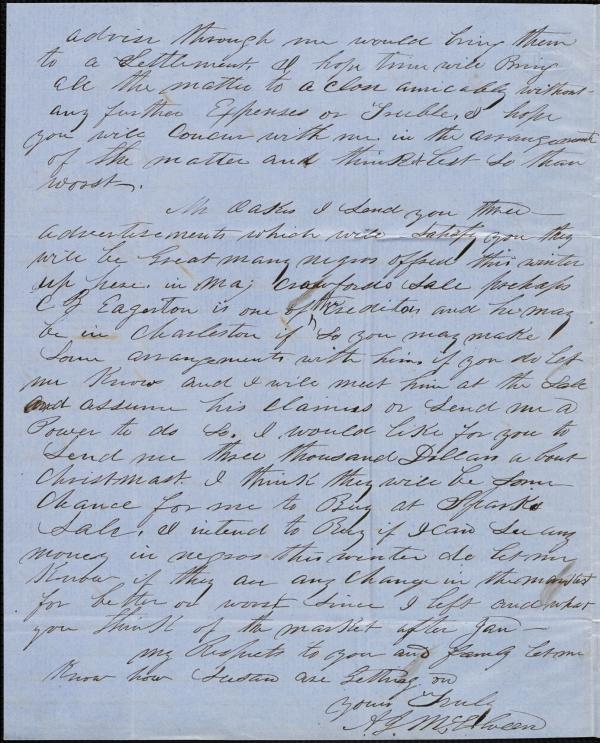 advise through me would bring them
to a Settlement. I hope time will Bring
all the matter to a close amicably without
any further Expenses or Truble. I hope
you will Concur with me in the arrangement
of the matter and think best so than
worst.
Mr Oakes I Send you three
advertisements which will Satisfy you they
will be Great many negros offred this winter
up here. in Maj Crawfords Sale perhaps
C J Eagerton is one of the Creditors and he may
be in Charleston if So you may make
Some arrangements with him. if you do let
me Know and I will meet him at the Sale
and assume his claimes or Send me a
Power to do So. I would like for you to
Send me three thousand Dollars a bout
Christmast. I think they will be Some
Chance for me to Buy at Sparks
Sale. I intend to Buy if I can See any
money in negros this winter do let me
Know if they are any Change in the market
for better or worst Since I left and what
you think of the market after Jan
my Respects to you and family let me
Know how Susan are Getting on
yours Truly
A J McElveen